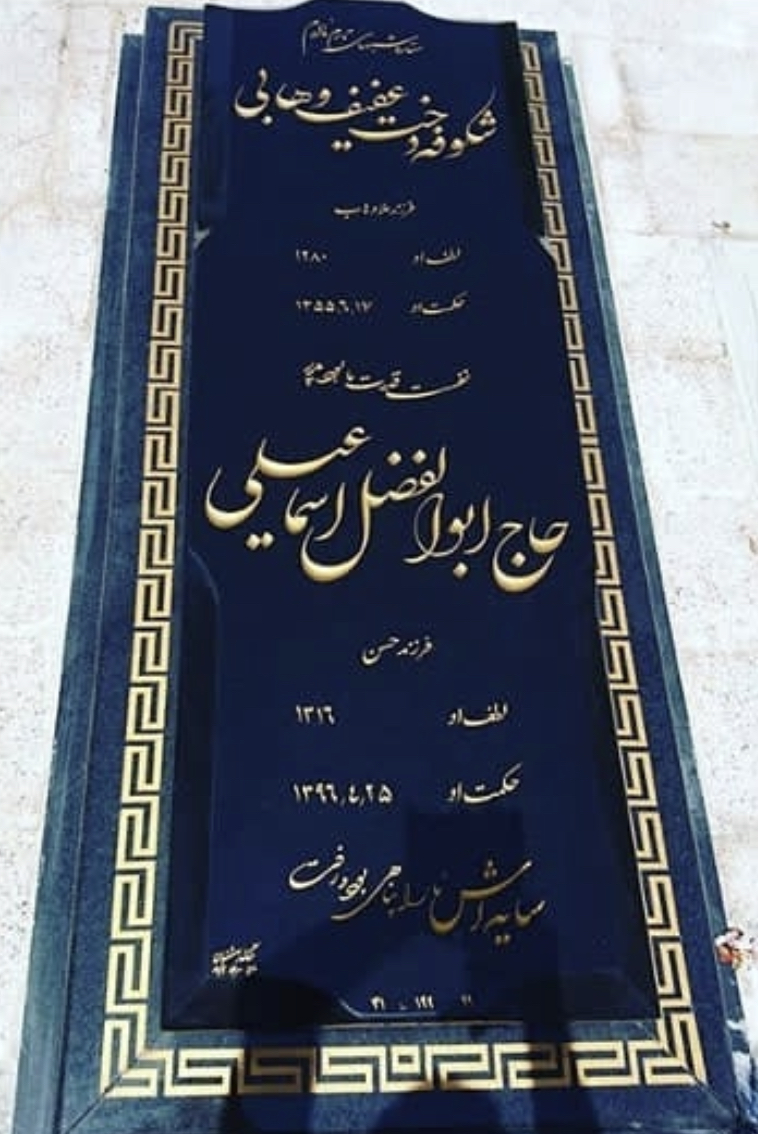 شکوفه دخت عفیف وهابی
فرزند غلام وهاب
لطف او ۱۲۸۰
حکمت او ۱۳۵۵٫۶٫۱۷
حاج ابوالفضل اسماعیلی
فرزند حسن
لطف او ۱۳۱۶
حکمت او ۱۳۹۶٫۴٫۲۵
سایه اش ما را پناهی بود و رفت
۳۱ - ۱۹۹